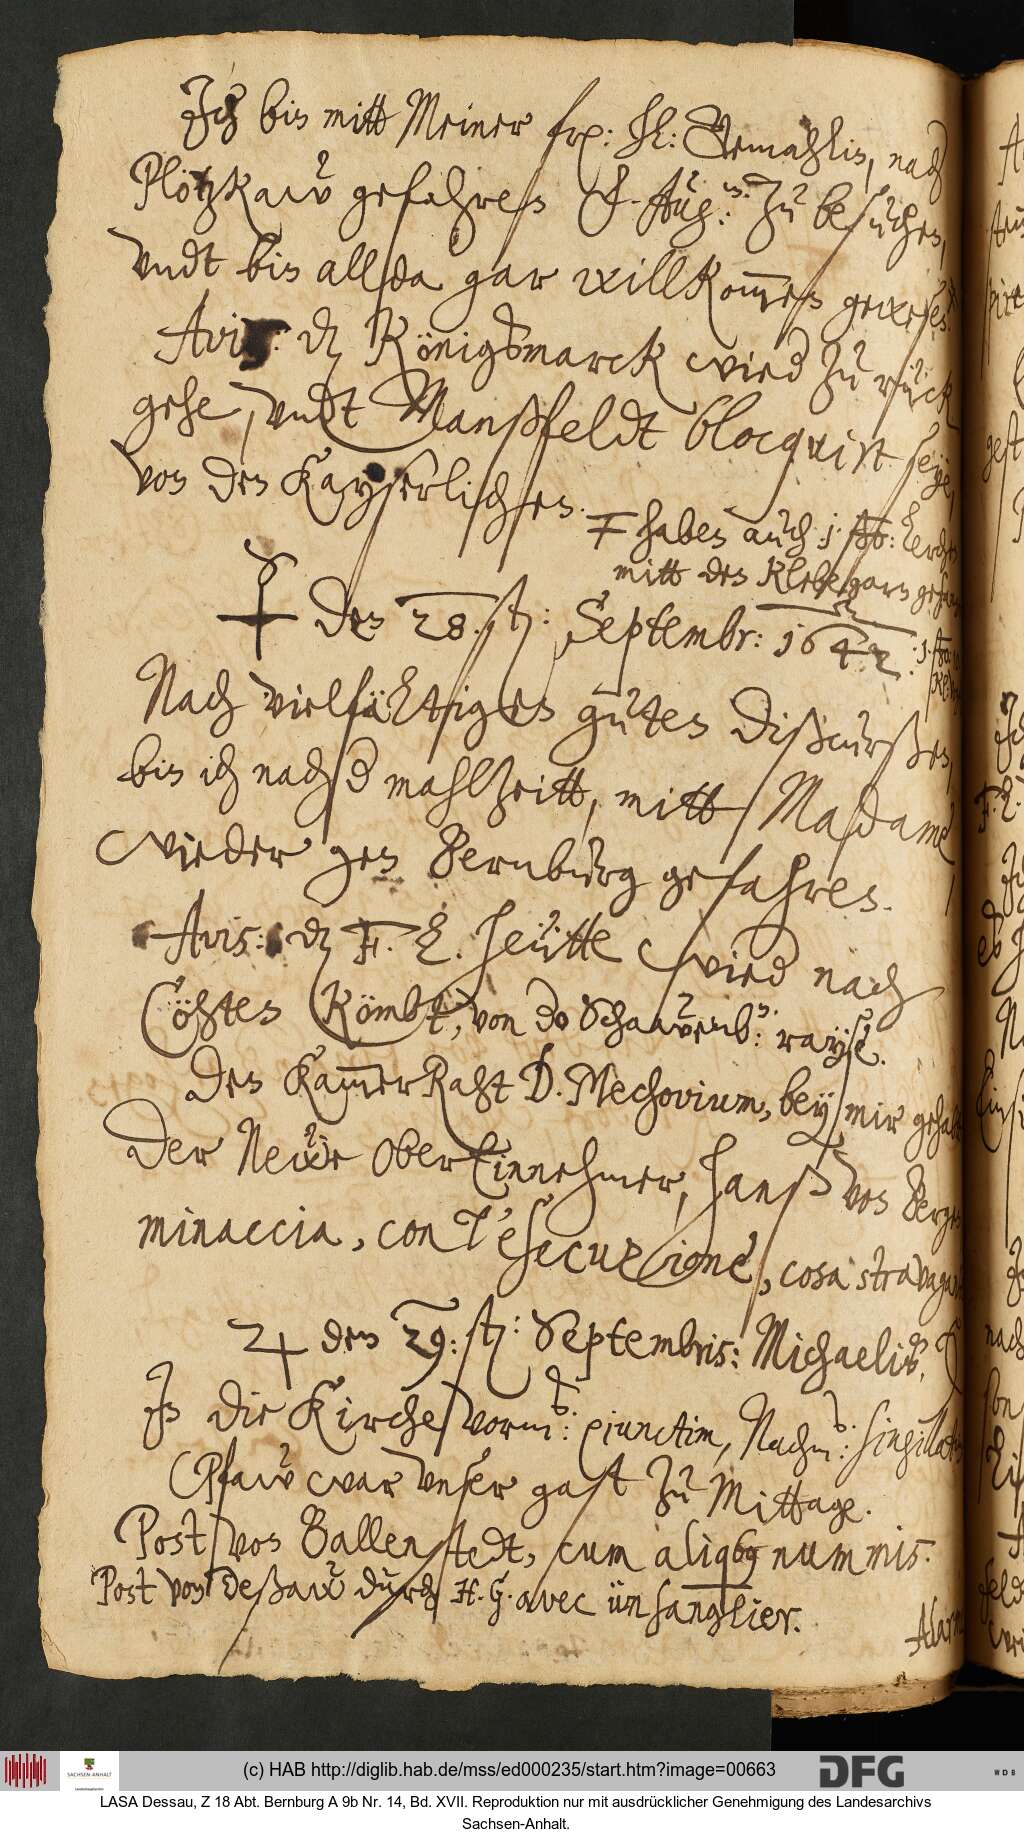 Ich bin mitt Meiner frp: hl: Gemahlin, nach
Plötzkaw gefahren F. Aug:m. zu besuchen,
vndt bin allda gar willkommen gewesen.
Avis: dz Königsmarck wied zu rück
gehe, vndt Manßfeldt blocquirt seye,
von den Kayserlichen.
haben auch 1 ßo: Lerchen
mitt den Klebegarn gefangen
☿ den 28. st: Septembr: 1642.
Nach vielfältigen guten dißcurßen,
bin ich nach d mahlzeitt, mitt Madame
wieder gen Bernburg gefahren.
Avis: dz F. L. heütte wied nach
Cöhten kömbt, von do Schaawenb: rayse.
Den KammerRaht D. Mechovium, bey mir gehabt
Der Newe OberEinnehmer, Hanß von Bergen
minaccia, con l'esecuzione, cosa stravagante
♃ den 29: st: Septembris: Michaelis.
In die Kirche vorm: conjunctim, Nachm: singillatim
Pfaw war vnser gast zu Mittage.
Post von Ballenstedt, cum aliqbus nummis.
Post von Deßaw durch H. G. avec ün sanglier.
Alarm
(c) HAB http://diglib.hab.de/mss/ed000235/start.htm?image=00663
DFG
WDB
SACHSEN-ANHALT
LASA Dessau, Z 18 Abt. Bernburg A 9b Nr. 14, Bd. XVII. Reproduktion nur mit ausdrücklicher Genehmigung des Landesarchivs
Sachsen-Anhalt.